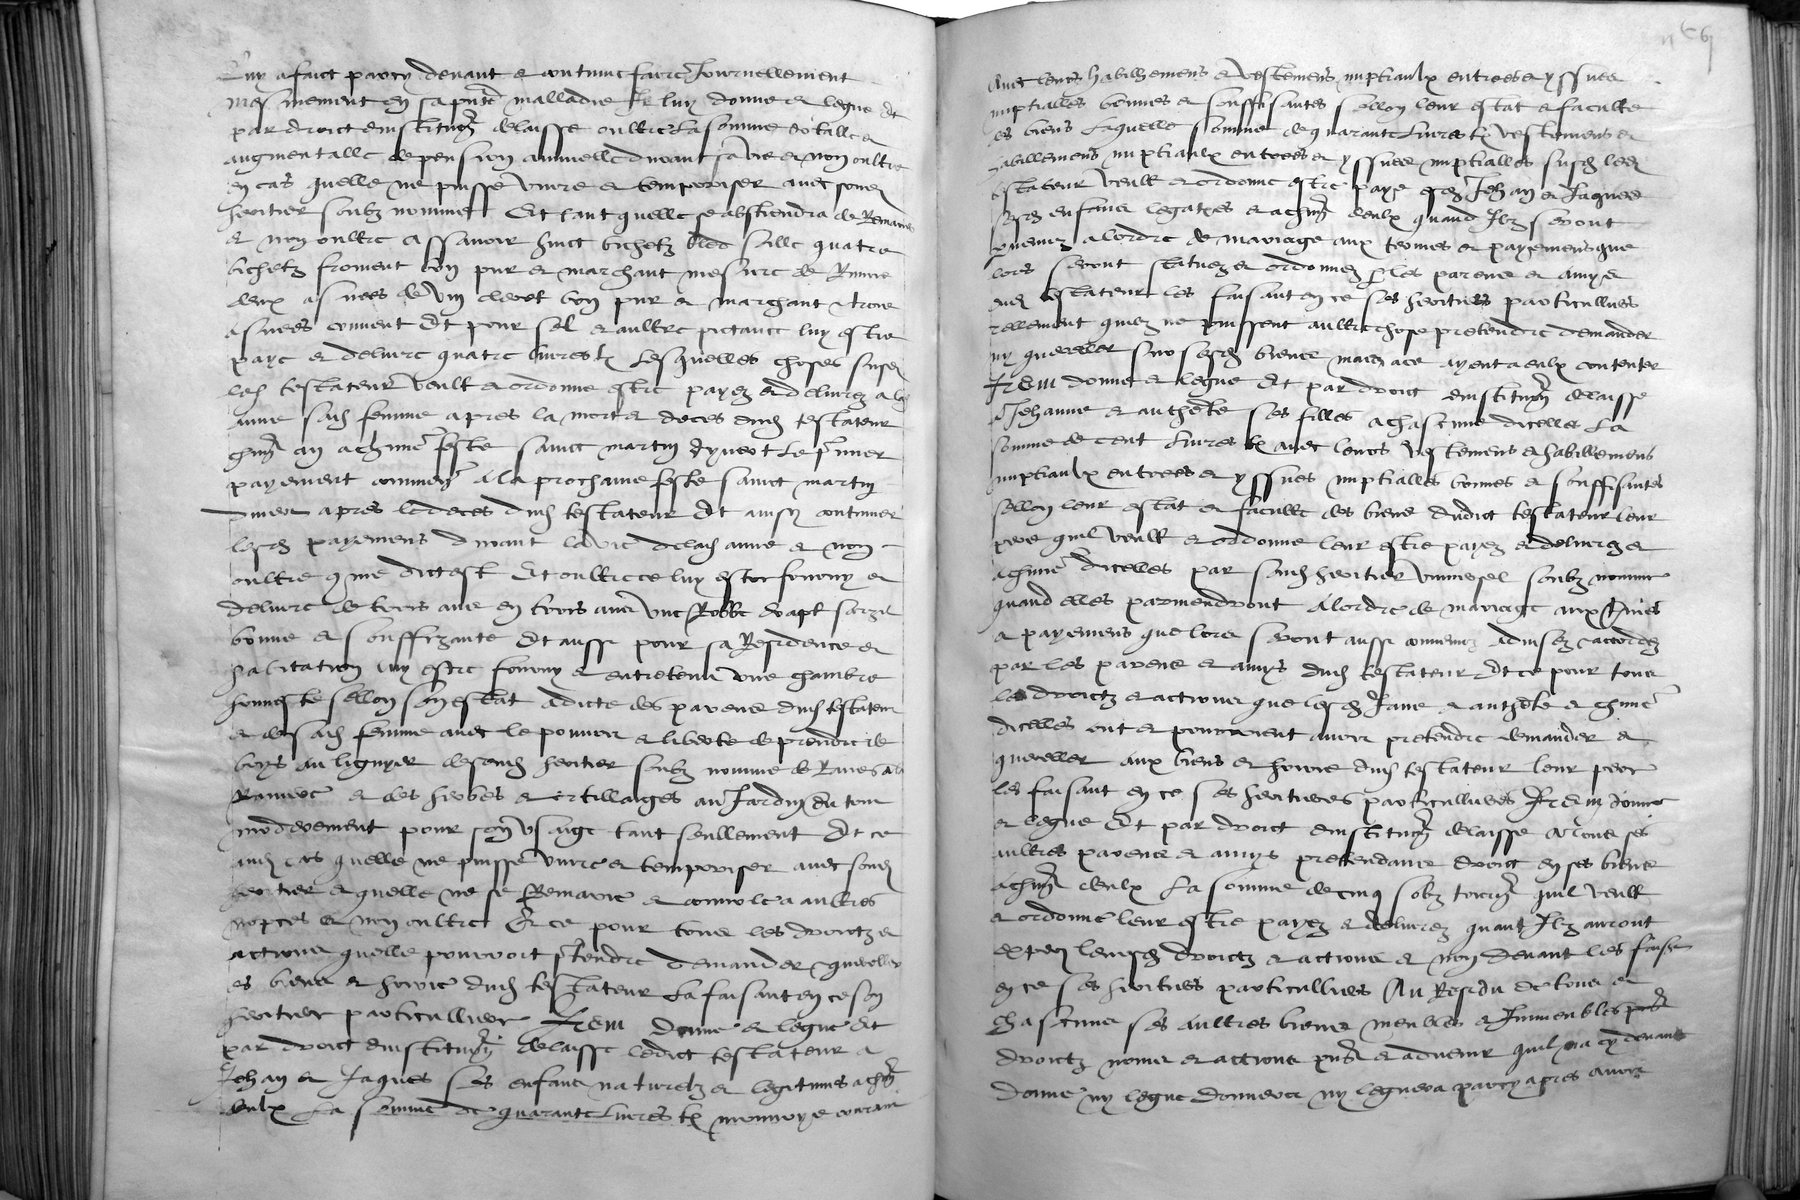 Luy a faict par cy devant et continue faire journellement
mesmement en sa pnte malladie Et luy donne et legue et
par droict dinstitution delaisse oultre la somme
augmentalle de pension annuelle durant sa vie et non oultre
en cas quelle ne puisse vivre et temporiser avec sond
heritier soubz nomme Et tant quelle se abstiendra de Remarier
et non oultre Assavoir huict bichetz bled seille quatre
bichetz froment bon pur et marchant mesure de
deux asnees de vin bon pur et marchant
asnees Et pour sel et aultre pictance luy estre
paye et delivre quatre livres tz Lesquelles choses susd
led testateur veult et ordonne estre payez et delivrez a lad
anne sad femme apres la mort et deces dud testateur
chun an a chune feste sainct martin dyvert Le pmier
payement commen a la prochaine feste sainct martin
dyver apres le deces dud testateur Et ainsy continuer
lesd payemens durant la vie de lad anne et non
oultre come dict est Et oultre ce luy estre forny et
delivre de trois ans en trois ans une Robbe drapt
bonne et souffizante Et aussi pour sa Residence et
habitation luy estre forny et entretenu une chambre
honneste sellon son estat a dicte des parens dud testateur
et de sad femme avec le pouvoir et liberte de prendre de
boys au lignyer de sond heritier soubz nomme de Raves a la
Raviere et des herbes et ortillaiges au Jardin du tout
moderement pour son usaige tant seullement Et ce
aud cas quelle ne puisse vivre et temporiser avec sond
heritier et quelle ne se Remarie et convole a aultres
nopces et non oultre Et ce pour tous les droictz et
actions quelle pourroit ptendre demander quereller
es biens et hoirie dud testateur La faisant en ce son
heritier particullier Item donne et legue Et
par droict dinstitution delaisse ledict testateur a
Jehan et Jaques ses enfans naturelz et legitimes a chun
deulx La somme de quarante Livres tz monnoye courant
Avec leurs habillemens et vestemens nuptiaulx entrees et yssues
nuptialles bonnes et souffisantes sellon leur estat et faculte
es biens Laquelle somme de quarante Livres tz vestemens et
habillemens nuptiaulx entrees et yssues nuptialles susd led
testateur veult et ordonne estre paye esd Jehan et Jaques
sesd enfans legatres et a chun deulx quand Ilz seront
pvenuz a lordre de mariage aux termes et payemens que
lors seront statuez et ordonnez p les parens et amys
dud testateur les faisant en ce ses heritiers particulliers
tellement quilz ne puissent aultre chose pretendre demander
ny quereller sur sesd biens mais a ce ayent a eulx contenter
Item donne et legue Et par droict dinstitution delaisse
a Jehanne et anthete ses filles a chascune dicelles La
somme de cent Livres tz avec leurs vestemens et habillemens
nuptiaulx entrees et yssues nuptialles bonnes et souffisantes
sellon leur estat et faculte des biens dudict testateur leur
pere quil veult et ordonne leur estre payez et delivrez et
a chune dicelles par sond heritier universel soubz nomme
quand elles parviendront a lordre de mariage aux
et payemens que lors seront aussi convenuz advisez accordez
par les parens et amys dud testateur Et ce pour tous
les droictz et actions que lesd Jane et anthete et chune
dicelles ont et pourroient avoir pretendre demander et
quereller aux biens et hoirie dud testateur leur pere
les faisant en ce ses heritieres particullieres Item donne
et legue Et par droict dinstitution delaisse a tous ses
aultres parens et amys pretendans droict en ses biens
a chun deulx La somme de cinq solz tourn quil veult
et ordonne leur estre payez et delivrez quant Ilz auront
leursd droictz et actions et non devant les faisant
en ce ses heritiers particulliers Au Residu de tous et
chascuns ses aultres biens meubles et Immeubles
droictz noms et actions pns et advenir quil na cy devant
donne ny legue donnera ny leguera par cy apres avoir